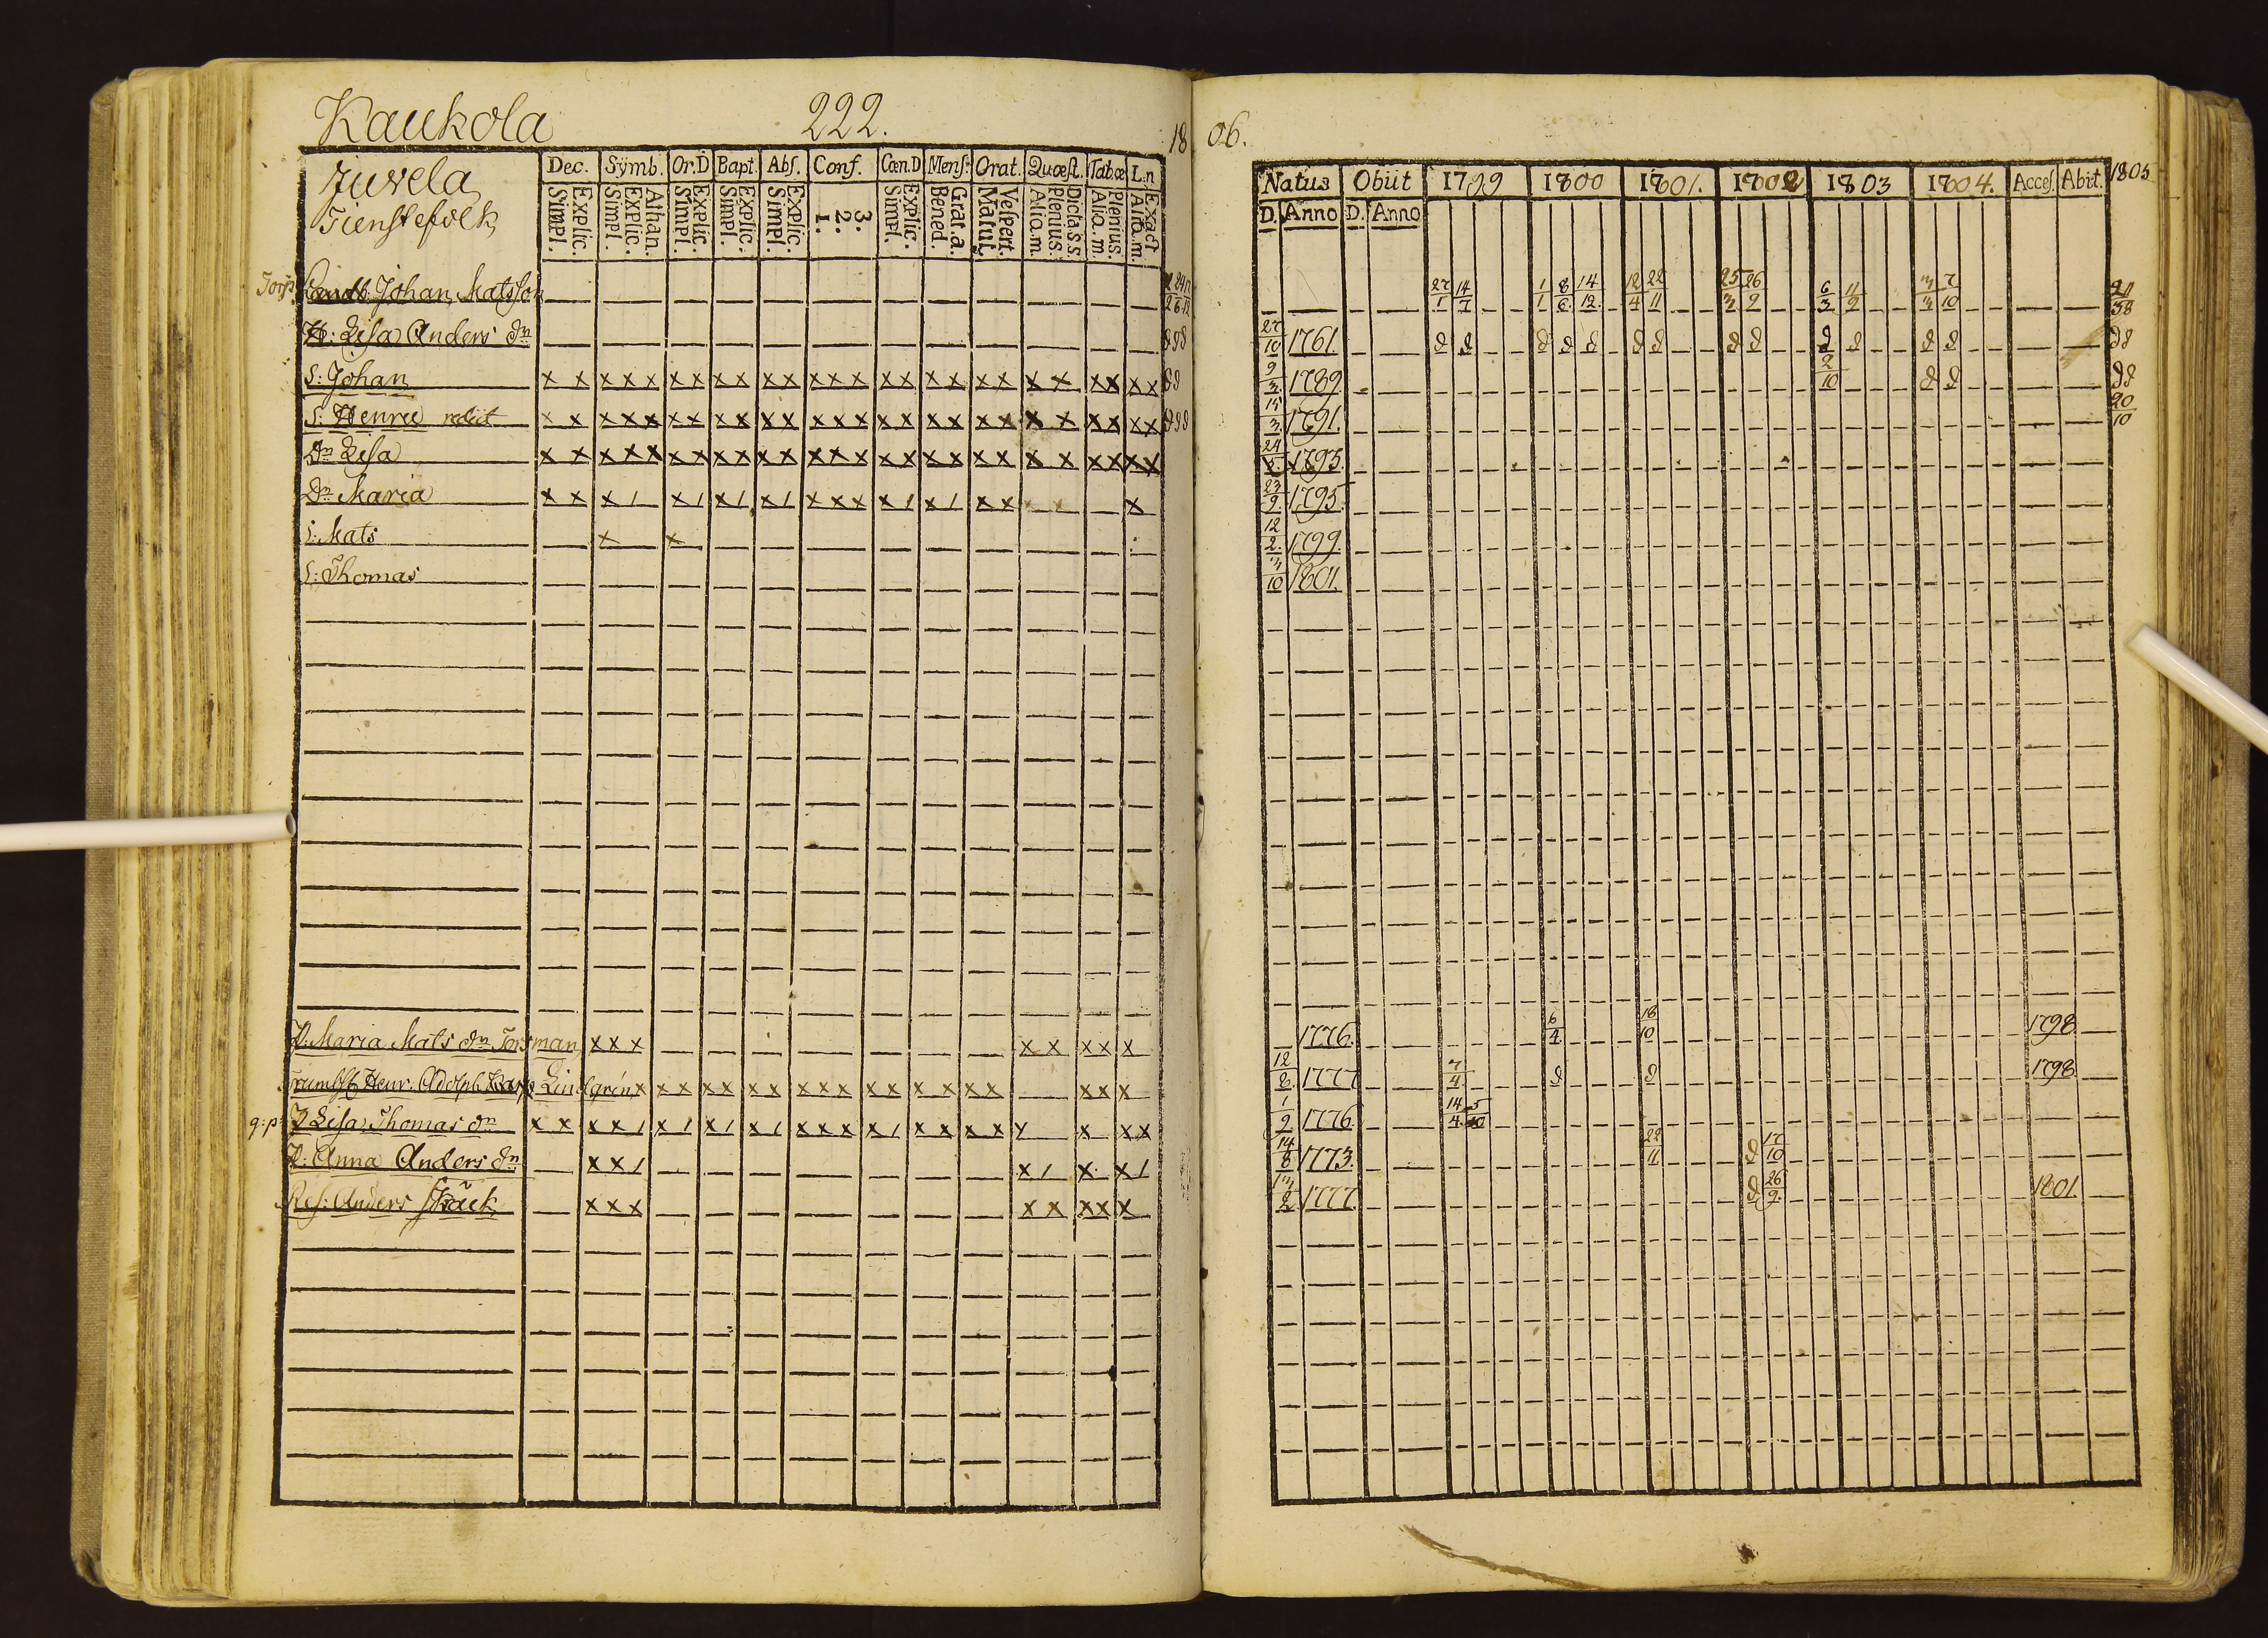 Kaukola 222. 1806.
Juvela
Tienstefolk
Dec. Sÿmb. Or.D Bapt. Abſ. Conf. Cœn.D Menſ. Orat. Quæſt. Tab.œ L:n
Simpl. Explic. Simpl. Explic. Athan. Simpl. Explic. Simpl. Explic. Simpl. Explic. 1. 2. 3. Simpl. Explic. Bened. Grat.a. Matut. Veſpert. Alio.m. Plenius. Dicta.s.s. Alio.m. Plenius. Alio.m. Exact
Natus Obiit 1799 1800 1801. 1802 1803 1804. Acceſ. Abiit. 1805
D. Anno D. Anno
Landb. Johan Matsſon 27/1 14/7 1/1 8/6 14/12 12/4 22/11 25/3 26/9 6/3 11/9 3/3 7/10
H: Lisa Anders dn 27/10 1761.
S: Johan x x x x x x x x x x x x x x x x x x x x x x x x x x 9/3 1789. 2/10
S: Henric x x x x x x x x x x x x x x x x x x x x x x x x x x 15/3 1791. 20/10
Dn Lisa x x x x x x x x x x x x x x x x x x x x x x x x x x 24 1793.
Dn Maria x x x / x / x / x / x x x x / x / x x x 23/9 1795.
S: Mats x x 12/2 1799.
S: Thomas 3/10 1801.
P: Maria Mats dn Forsman x x x x x x x x 1776. 6/4 18/10 1798.
Trumbsl. Henr. Adolph Lindgrén x x x x x x x x x x x x x x x x x x x 12/8 1777 7/4 1798.
P Lisa Thomas dn x x x x / x / x / x / x x x x / x x x x x x x x 1/9 1776. 14/4 5/10
P: Anna Anders dn x x / x / x x / 14/8 1773. 22/11 17/10
Res: Anders Skäck x x x x x x x x 13/2 1777. 26/9 1801.